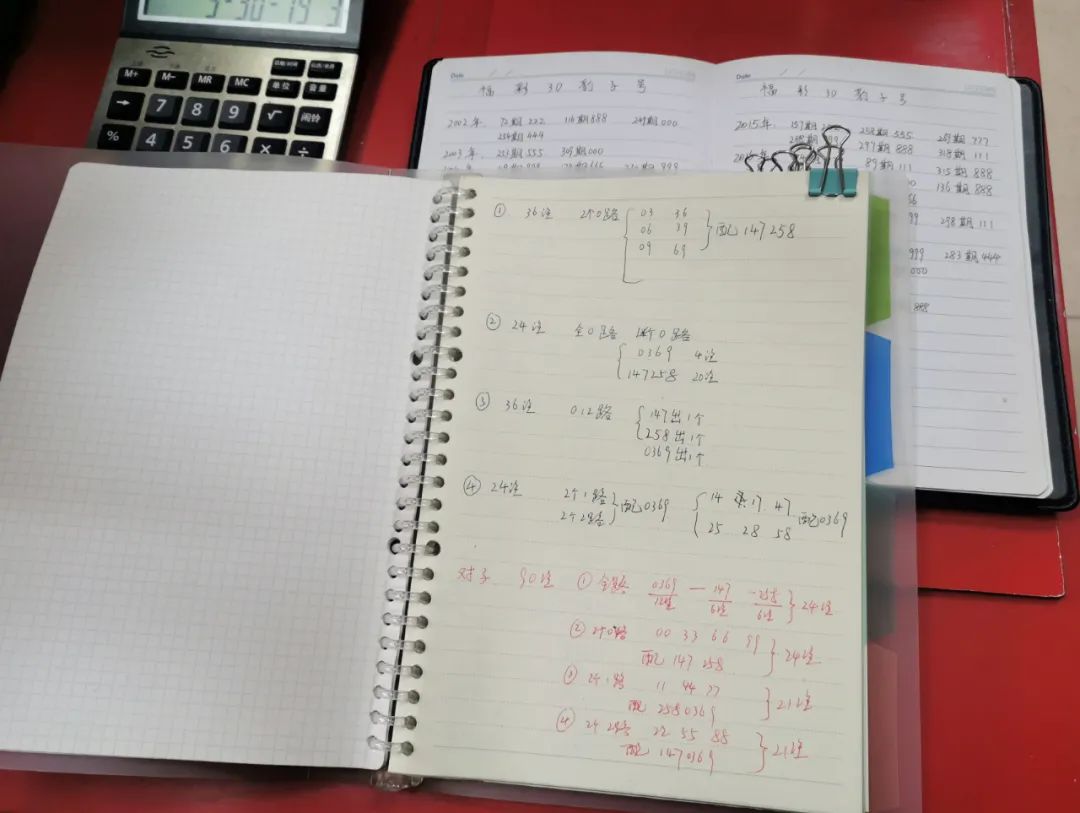 3-30-19 3
M+ M- MR MC 单位 音量
→ 7 8 9 √ 闹铃
% 4 5 6 × ÷
Date / /
福彩3D豹子号
2002年. 72期222 116期888 249期000
254期444
2003年. 251期555 309期000
Date / /
福彩3D豹子号
2015年. 157期 258期555 269期777
297期888 318期111
89期111 315期888
136期888
298期111
999 283期444
000
888
① 36注 2个0路 { 03 36
06 39
09 69 } 配147258
② 24注 全0路 0路
{ 0369 4注
147258 20注
③ 36注 012路 { 147出1个
258出1个
0369出1个
④ 24注 2个1路
2个2路 } 配0369 { 14 17 47
25 28 58 配0369
对子 90注 ① 全路 0369 — 147 — 258 } 24注
12注 6注 6注
② 2个0路 00 33 66 99
配 147 258 } 24注
③ 2个1路 11 44 77
配 2580369 } 21注
④ 2个2路 22 55 88
配 1470369 } 21注